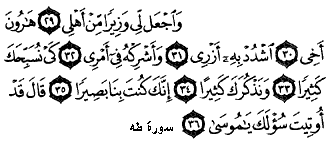 وَٱجْعَل لِّى وَزِيرًا مِّنْ أَهْلِى ٢٩ هَٰرُونَ
أَخِى ٣٠ ٱشْدُدْ بِهِۦٓ أَزْرِى ٣١ وَأَشْرِكْهُ فِىٓ أَمْرِى ٣٢ كَىْ نُسَبِّحَكَ
كَثِيرًا ٣٣ وَنَذْكُرَكَ كَثِيرًا ٣٤ إِنَّكَ كُنتَ بِنَا بَصِيرًا ٣٥ قَالَ قَدْ
أُوتِيتَ سُؤْلَكَ يَٰمُوسَىٰ ٣٦
سورة طه